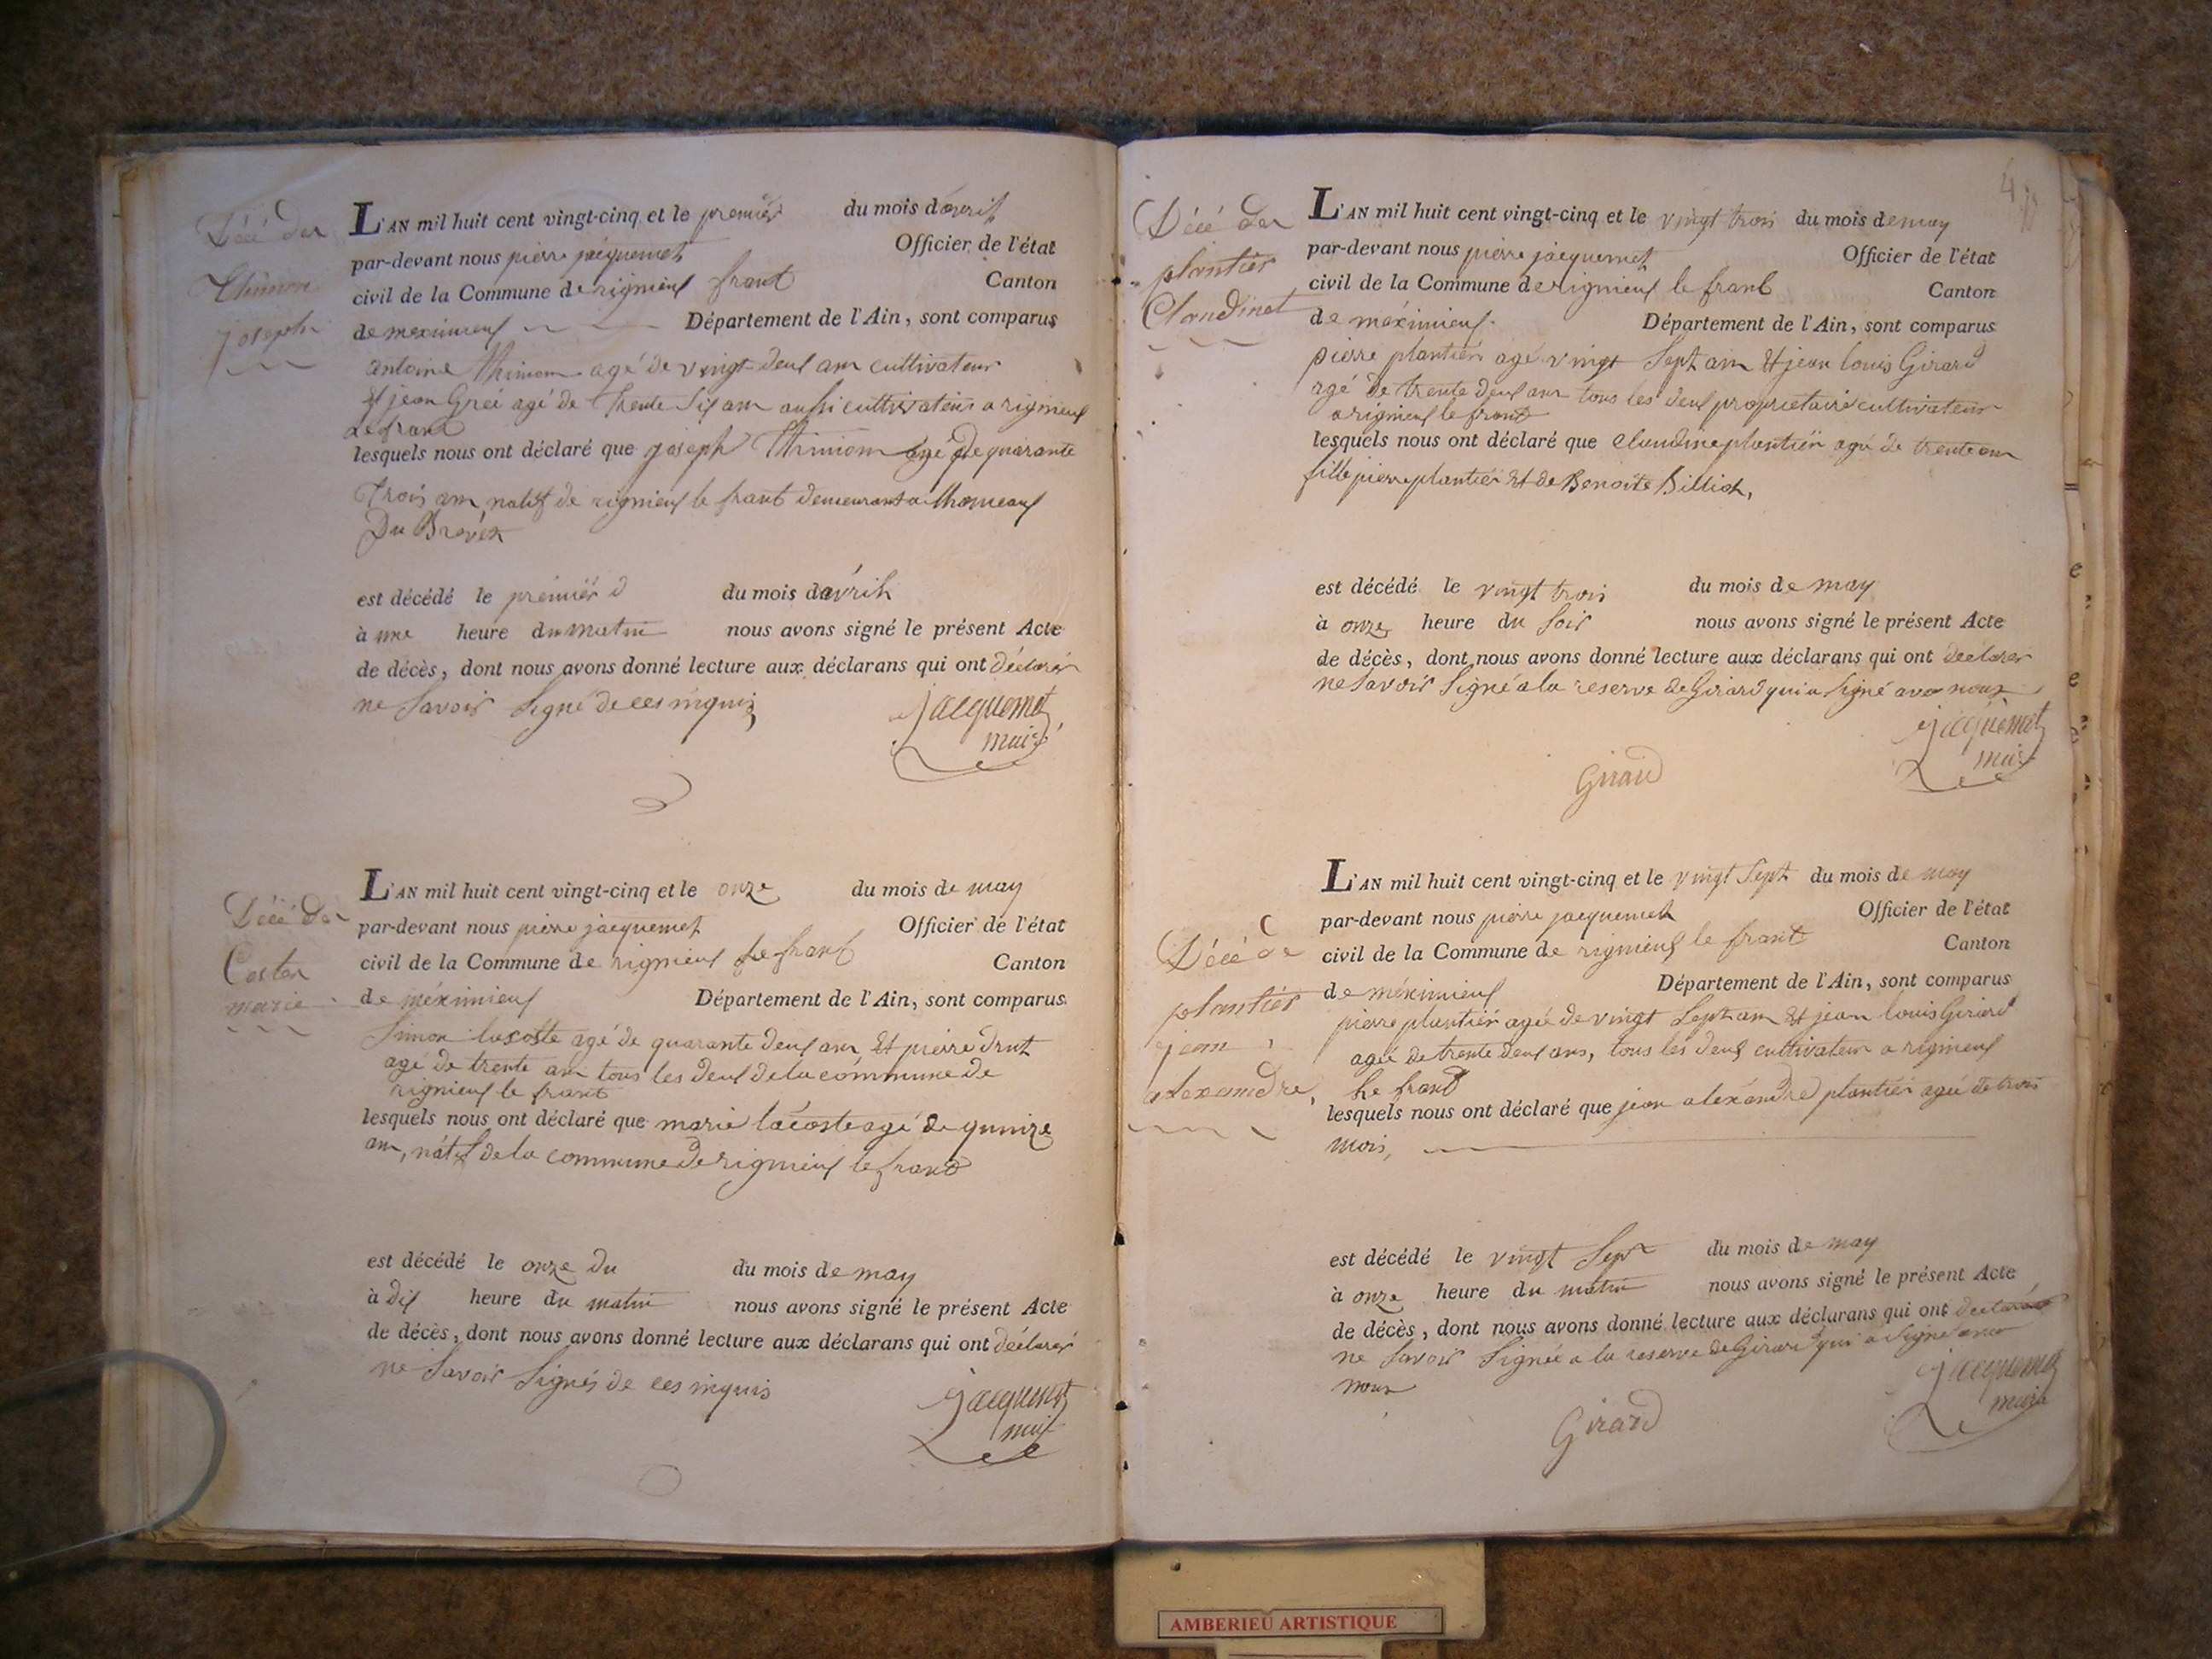 Décé der
Thimon
joseph
L'AN mil huit cent vingt-cinq et le premiér du mois d'avril
par-devant nous pierre jacquemet Officier de l'état
civil de la Commune de rignieux frant Canton
de meximieux Département de l'Ain, sont comparus
antoine Thimon agé de vingt deux am cultivateur
et jean Greé agé de trente six am aussi cultivateur a rignieux
Le frant
lesquels nous ont déclaré que joseph Thimom agé de quarante
trois am natif de rignieux le frant demeurant a lhameaux
Du Brovet
est décédé le premiér d du mois davrih
à une heure du matin nous avons signé le présent Acte
de décès, dont nous avons donné lecture aux déclarans qui ont déclarér
ne savoir signé de ces inquis
jacquemet
maire
Décé der
Coster
marie
L'AN mil huit cent vingt-cinq et le onze du mois de may
par-devant nous pierre jacquemet Officier de l'état
civil de la Commune de rignieux Le frant Canton
de méximieux Département de l'Ain, sont comparus
Simon lacoste agé de quarante deux am et pierre drut
agé de trente am tous les deux de la commune de
rignieux le frant
lesquels nous ont déclaré que marie lacoste agé de quinze
am, natif de la commune de rignieux le frant
est décédé le onze du du mois de may
à dix heure du matin nous avons signé le présent Acte
de décès, dont nous avons donné lecture aux déclarans qui ont déclarér
ne savoir signés de ces inquis
jacquemet
maire
4
Décé der
plantiér
Claudinet
L'AN mil huit cent vingt-cinq et le vingt trois du mois de may
par-devant nous pierre jacquemet Officier de l'état
civil de la Commune de rignieux le frant Canton
de méximieux Département de l'Ain, sont comparus
pierre plantiér agé vingt sept am et jean louis Girard
agé de trente deux am tous les deux proprietaire cultivateur
a rignieux le frant
lesquels nous ont déclaré que claudine plantiér agé de trente am
fille pierre plantiér et de Benoite Billion,
est décédé le vingt trois du mois de may
à onze heure du soir nous avons signé le présent Acte
de décès, dont nous avons donné lecture aux déclarans qui ont declarer
ne savoir signé a la reserve de Girard qui a signé avec nous
jacquemet
maire
Girard
Décé de
plantiér
jean
alexandre,
L'AN mil huit cent vingt-cinq et le vingt sept du mois de may
par-devant nous pierre jacquemet Officier de l'état
civil de la Commune de rignieux le frant Canton
de méximieux Département de l'Ain, sont comparus
pierre plantiér agée de vingt sept am et jean louis Girard
agée de trente deux ans, tous les deux cultivateur a rignieux
Le frant
lesquels nous ont déclaré que jean aléxandre plantiér agée de trois
mois,
est décédé le vingt sept du mois de may
à onze heure du matin nous avons signé le présent Acte
de décès, dont nous avons donné lecture aux déclarans qui ont declarér
ne savoir signée a la reserve de Girard qui a signé avec
nous
jacquemet
maire
Girard
AMBERIEU ARTISTIQUE